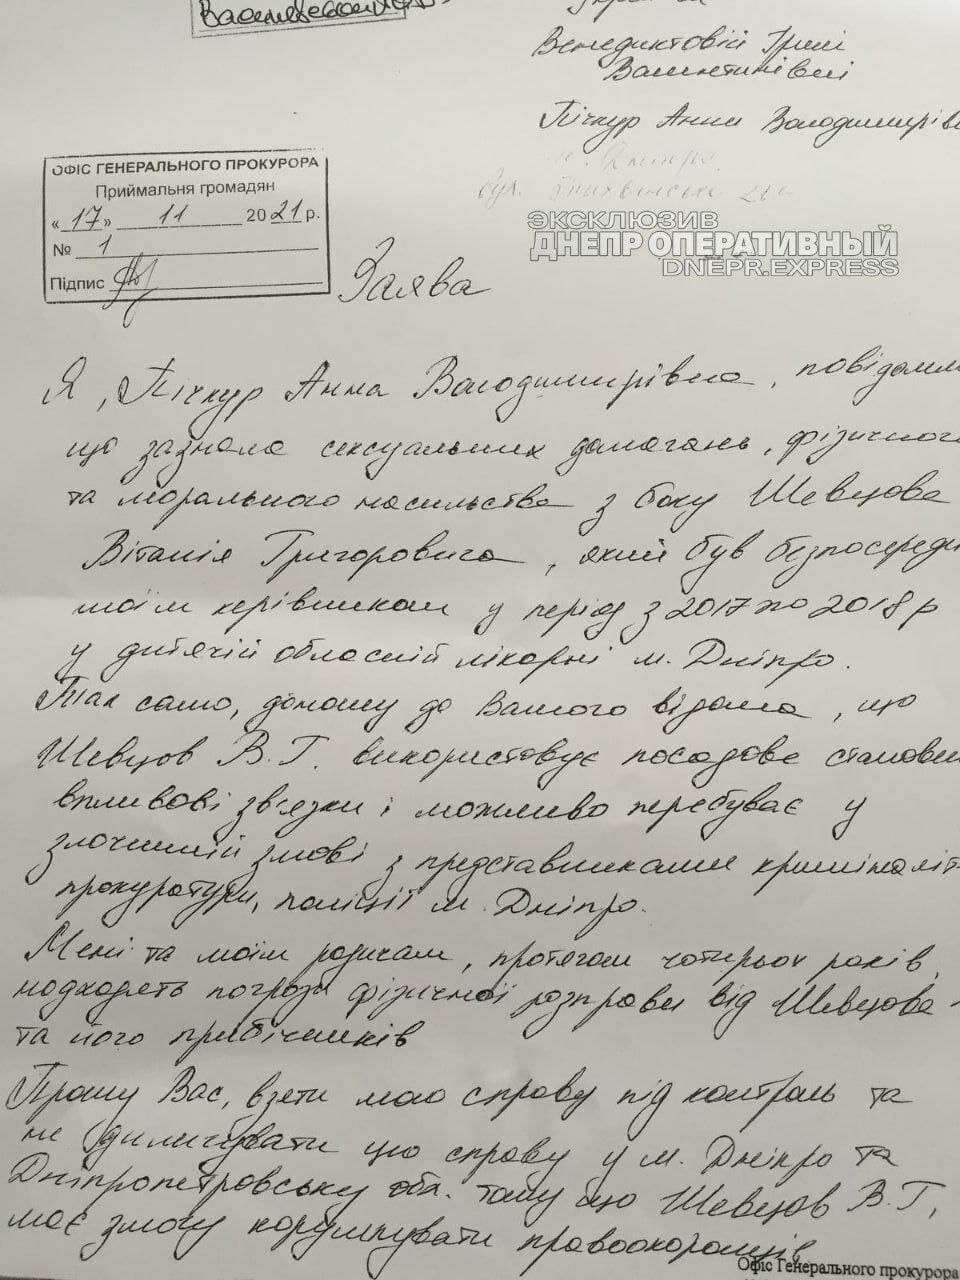 Венедиктовій Ірині
Валентинівні
Пічкур Анни Володимирівн
м. Дніпро
вул.
ОФІС ГЕНЕРАЛЬНОГО ПРОКУРОРА
Приймальня громадян
«17» 11 2021 р.
№ 1
Підпис
ЭКСКЛЮЗИВ
ДНЕПР ОПЕРАТИВНЫЙ
DNEPR.EXPRESS
Заява
Я, Пічкур Анна Володимирівна, повідомля
що зазнала сексуальних домагань, фізичного
та морального насильства з боку Шевцова
Віталія Григоровича, який був безпосередн
моїм керівником у період з 2017 по 2018 р
у дитячій обласній лікарні м. Дніпро.
Так само, доношу до Вашого відома, що
Шевцов В.Г. використовує посадове станови
впливові зв'язки і можливо перебуває у
злочинній змові з представниками криміналіт
прокуратури, поліції м. Дніпро.
Мені та моїм родичам, протягом чотирьох років,
надходять погрози фізичної розправи від Шевцова
та його прибічників
Прошу Вас, взяти мою справу під контроль та
не цю справу у м. Дніпро та
Дніпропетровську обл. тому що Шевцов В.Г,
має змогу корумпувати правоохоронців
Офіс Генерального прокурора